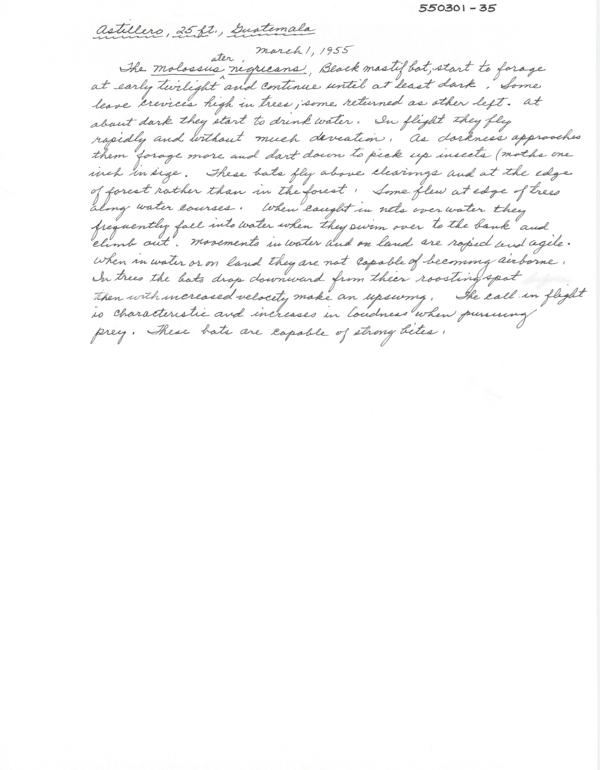 550301-35
Astillero, 25 ft., Guatemala
March 1, 1955
ater
The Molossus ^ nigricans, Black mastif bat, start to forage
at early twilight and continue until at least dark. Some
leave crevices high in trees; some returned as other left. At
about dark they start to drink water. In flight they fly
rapidly and without much deviation. As darkness approaches
them forage more and dart down to pick up insects (moths one
inch in size. These bats fly above clearings and at the edge
of forest rather than in the forest. Some flew at edge of trees
along water courses. When caught in nets over water they
frequently fall into water when they swim over to the bank and
climb out. Movements in water and on land are rapid and agile.
When in water or on land they are not capable of becoming airborne.
In trees the bats drop downward from thier roosting spot
then with increased velocity make an upswing. The call in flight
is characteristic and increases in loudness when pursuing
prey. These bats are capable of strong bites.